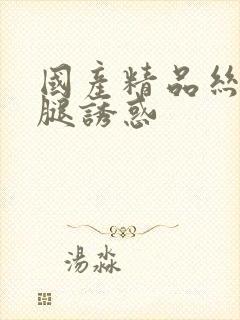 國產精品絲
腿誘惑
湯淼